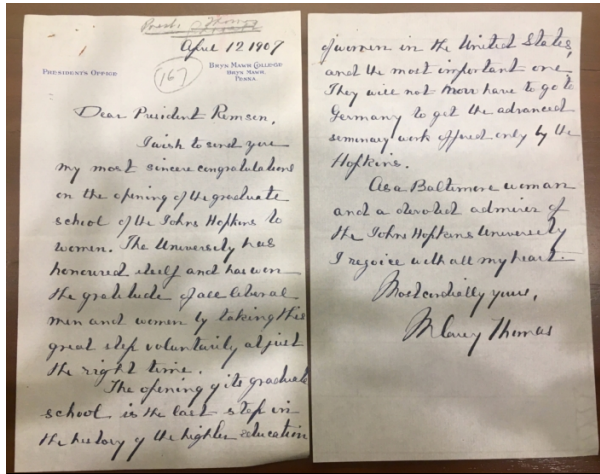 Presid. Thomas
April 12 1907
PRESIDENT'S OFFICE
BRYN MAWR COLLEGE
BRYN MAWR,
PENNA
167
Dear President Remsen,
I wish to send you
my most sincere congratulations
on the opening of the graduate
school of the Johns Hopkins to
women. The University has
honoured itself and has won
the gratitude of all liberal
men and women by taking this
great step voluntarily at just
the right time.
The opening of its graduate
school is the last step in
the history of the higher education
of women in the United States,
and the most important one
They will not now have to go to
Germany to get the advanced
seminary work offered only by the
Hopkins.
As a Baltimore woman
and a devoted admirer of
the Johns Hopkins University
I rejoice with all my heart.
Most cordially yours,
M Carey Thomas